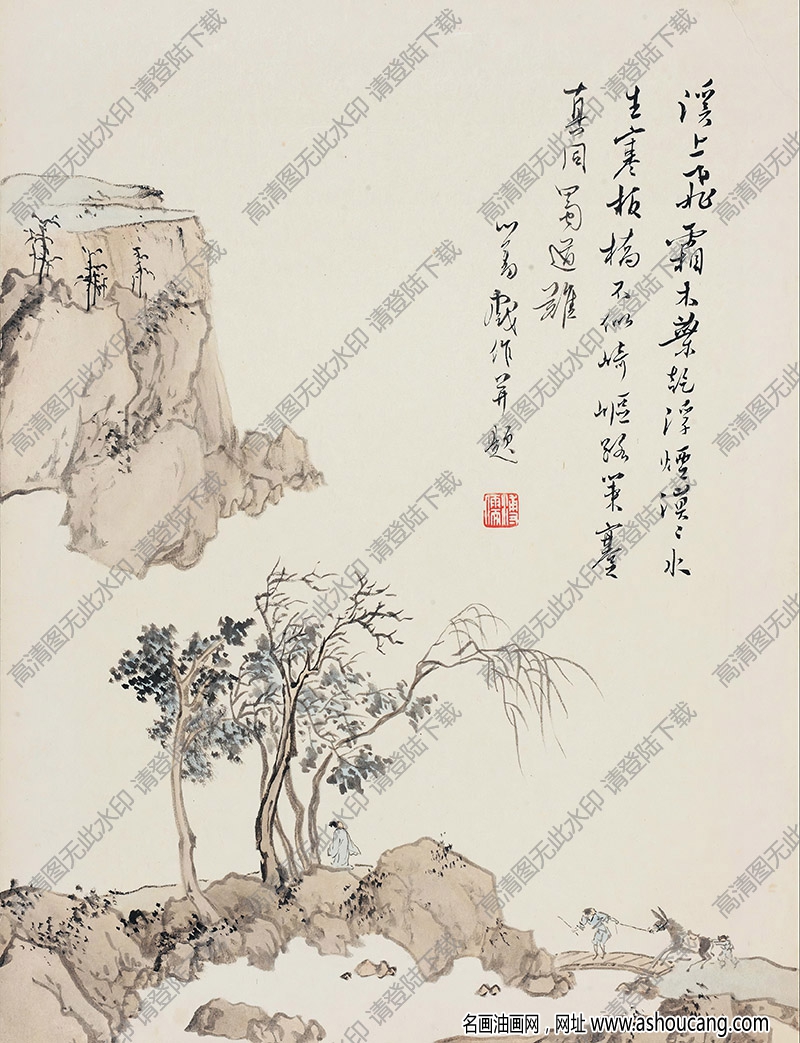 溪上飛霜木葉乾浮煙漠〻水
生寒板橋不似崎嶇路策蹇
真同蜀道難
心畬戲作并題
溥儒
高清图无此水印 请登陆下载
名画油画网，网址 www.ashoucang.com